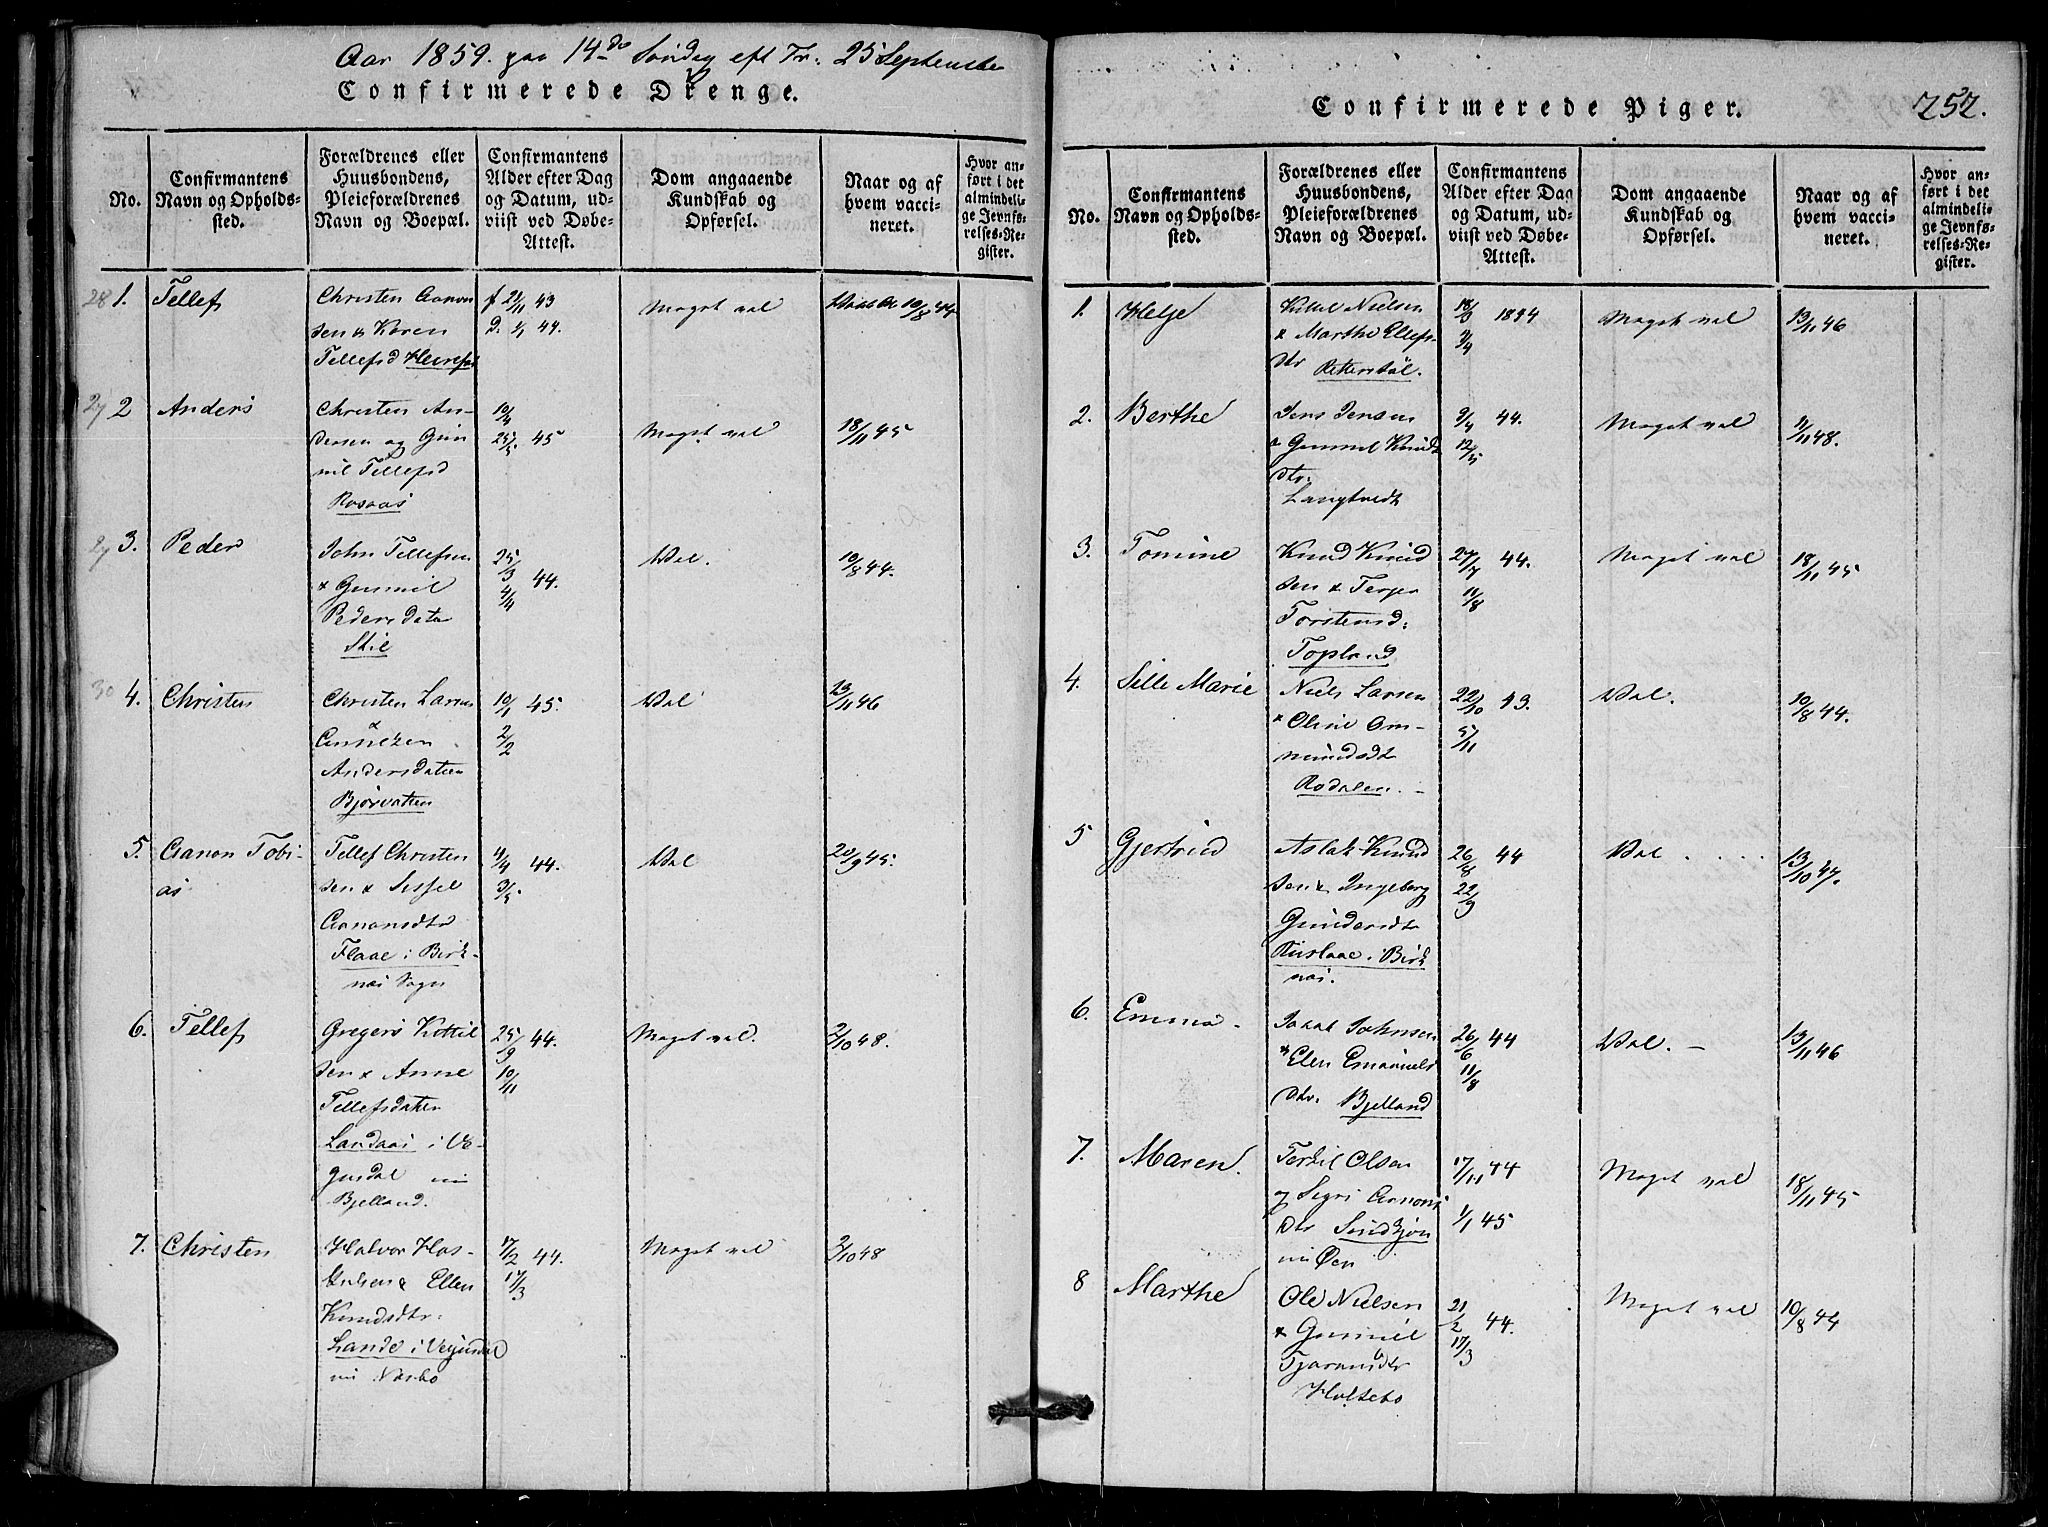 Aar 1859. paa 14de Søndag eft Tr: 25 September
Confirmerede Drenge.
No.
Confirmantens
Navn og Opholds-
sted.
Forældrenes eller
Huusbondens,
Pleieforældrenes
Navn og Boepæl.
Confirmantens
Alder efter Dag
og Datum, ud-
viist ved Døbe-
Attest.
Dom angaaende
Kundskab og
Opførsel.
Naar og af
hvem vacci-
neret.
Hvor an-
ført i det
almindeli-
ge Jevnfø-
relses-Re-
gister.
28 1. Tellef
Christen Aanon
sen & Karen
Tellefsd
f 21/11 43
D. 1/1 44.
Meget vel
10/8 44
2 Anders
Christen An-
dersen og Gun
nil Tellefsd
Rosaas
10/4
25/5 45
Meget vel
18/11 45
3. Peder
John Tellefsen
& Gunnil
Peders datter
Skil
25/3 44.
4/4
Vel.
10/8 44.
30 4. Christen
Christen Larsen
&
Annezen
Andersdatter
Bjørvatten
10/1 45.
2/2
Vel
13/11 46
5. Aanon Tobi-
as
Tellef Christen
sen & Sissel
Aanonsdtr
Flaae i Birke-
næs Sogn
4/4 44.
3/5
Vel
20/9 45.
6. Tellef
Gregers Kittil
sen & Anne
Tellefsdatter
Landaas i Ve-
gusdal nu
Bjelland.
25/9 44.
10/11
Meget vel.
2/10 48.
7. Christen
Halvor Has-
& Ellen
Knudsdtr.
Lande i Vegusdal
nu Næsbø
17/2 44.
17/3
Meget vel
2/10 48
Confirmerede Piger.
252.
No.
Confirmantens
Navn og Opholds-
sted.
Forældrenes eller
Huusbondens,
Pleieforældrenes
Navn og Boepæl.
Confirmantens
Alder efter Dag
og Datum, ud-
viist ved Døbe-
Attest.
Dom angaaende
Kundskab og
Opførsel.
Naar og af
hvem vacci-
neret.
Hvor an-
ført i det
almindeli-
ge Jevnfø-
relses-Re-
gister.
1. Helje
Kittel Nielsen
& Marthe Ellefs
dtr Retterstøl.
18/3 1844
9/4
Meget vel
13/11 46
2. Berthe
Jens Jensen
& Gunnel Knuds
dtr.
Langtvedt
9/4 44.
12/5
Meget vel
11/11 48.
3. Tomine
Knud Knud
sen & Terjer
Torstensd:
Topland
27/7 44.
11/8
Meget vel
18/11 45
4. Sille Marie
Niels Larsen
& Oline Om-
mundsdtr
Rodalen. -
22/10 43.
5/11
Vel.
10/8 44.
5 Gjertrud
Aslak Knud
sen & Ingeborg
Gundersdtr
Riislaae i Birk
næs.
26/8 44
22/9
Vel . . . .
13/10 47.
6. Emma.
Jakob Johnsen
& Elen Emanuels
dtr. Bjelland
26/6 44
11/8
Vel. -
13/11 46
7. Maren.
Terkil Olsen
og Segri Aanons
dtr Sundtjøn
nu Øen
17/11 44
1/1 45
Meget vel
18/11 45
8 Marthe
Ole Nielsen
& Gunnil
Tjøransdtr
Holtebo
21/2 44.
17/3
Meget vel
10/8 44